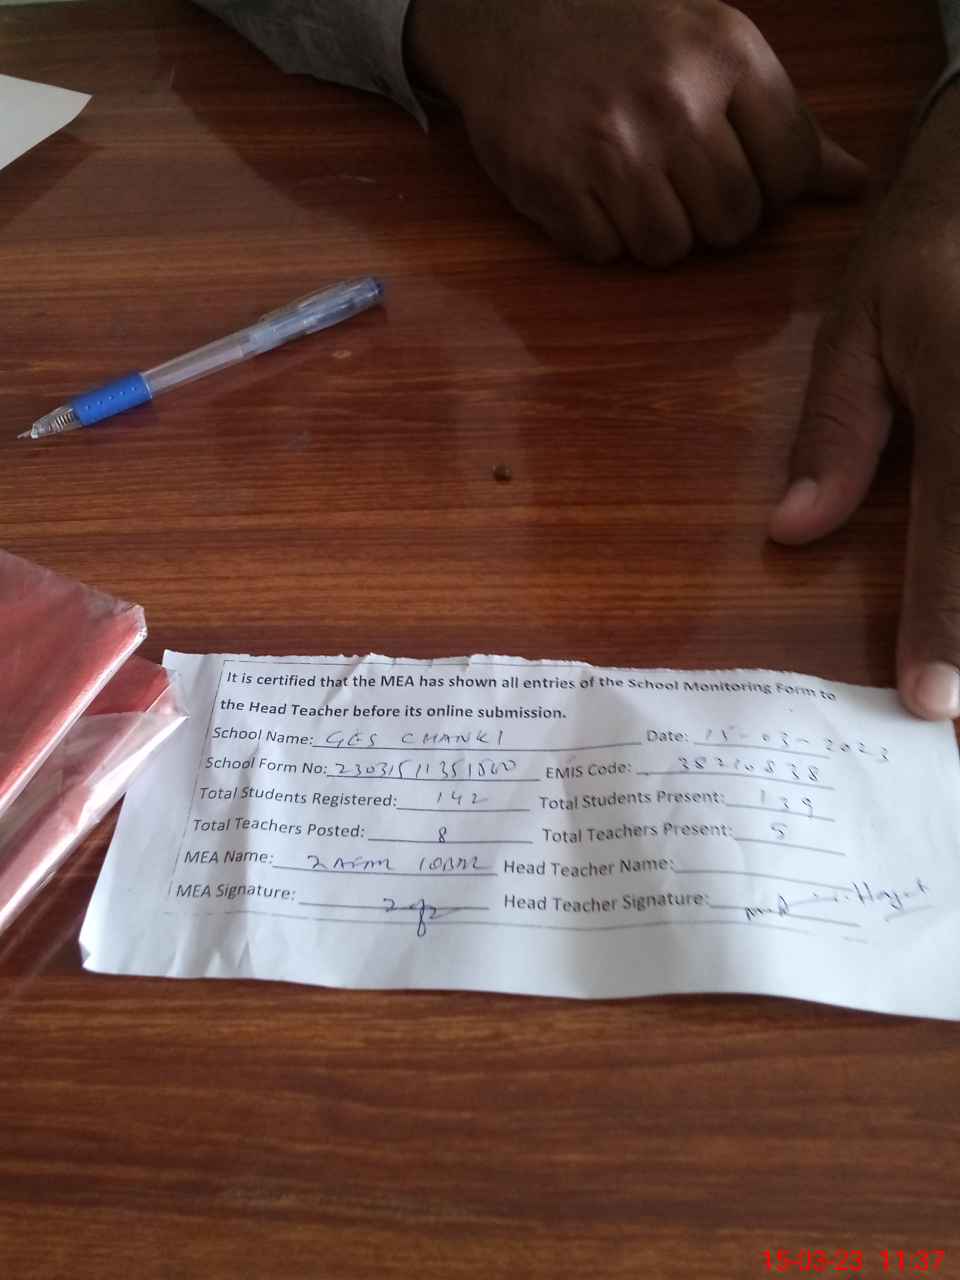 It is certified that the MEA has shown all entries of the School Monitoring Form to
the Head Teacher before its online submission.
School Name: GES CHANKI Date: 15-03-2023
School Form No: 23031511351860 EMIS Code: 38210838
Total Students Registered: 142 Total Students Present: 139
Total Teachers Posted: 8 Total Teachers Present: 5
MEA Name: Head Teacher Name:
MEA Signature: Head Teacher Signature: Hayat
15-03-23 11:37